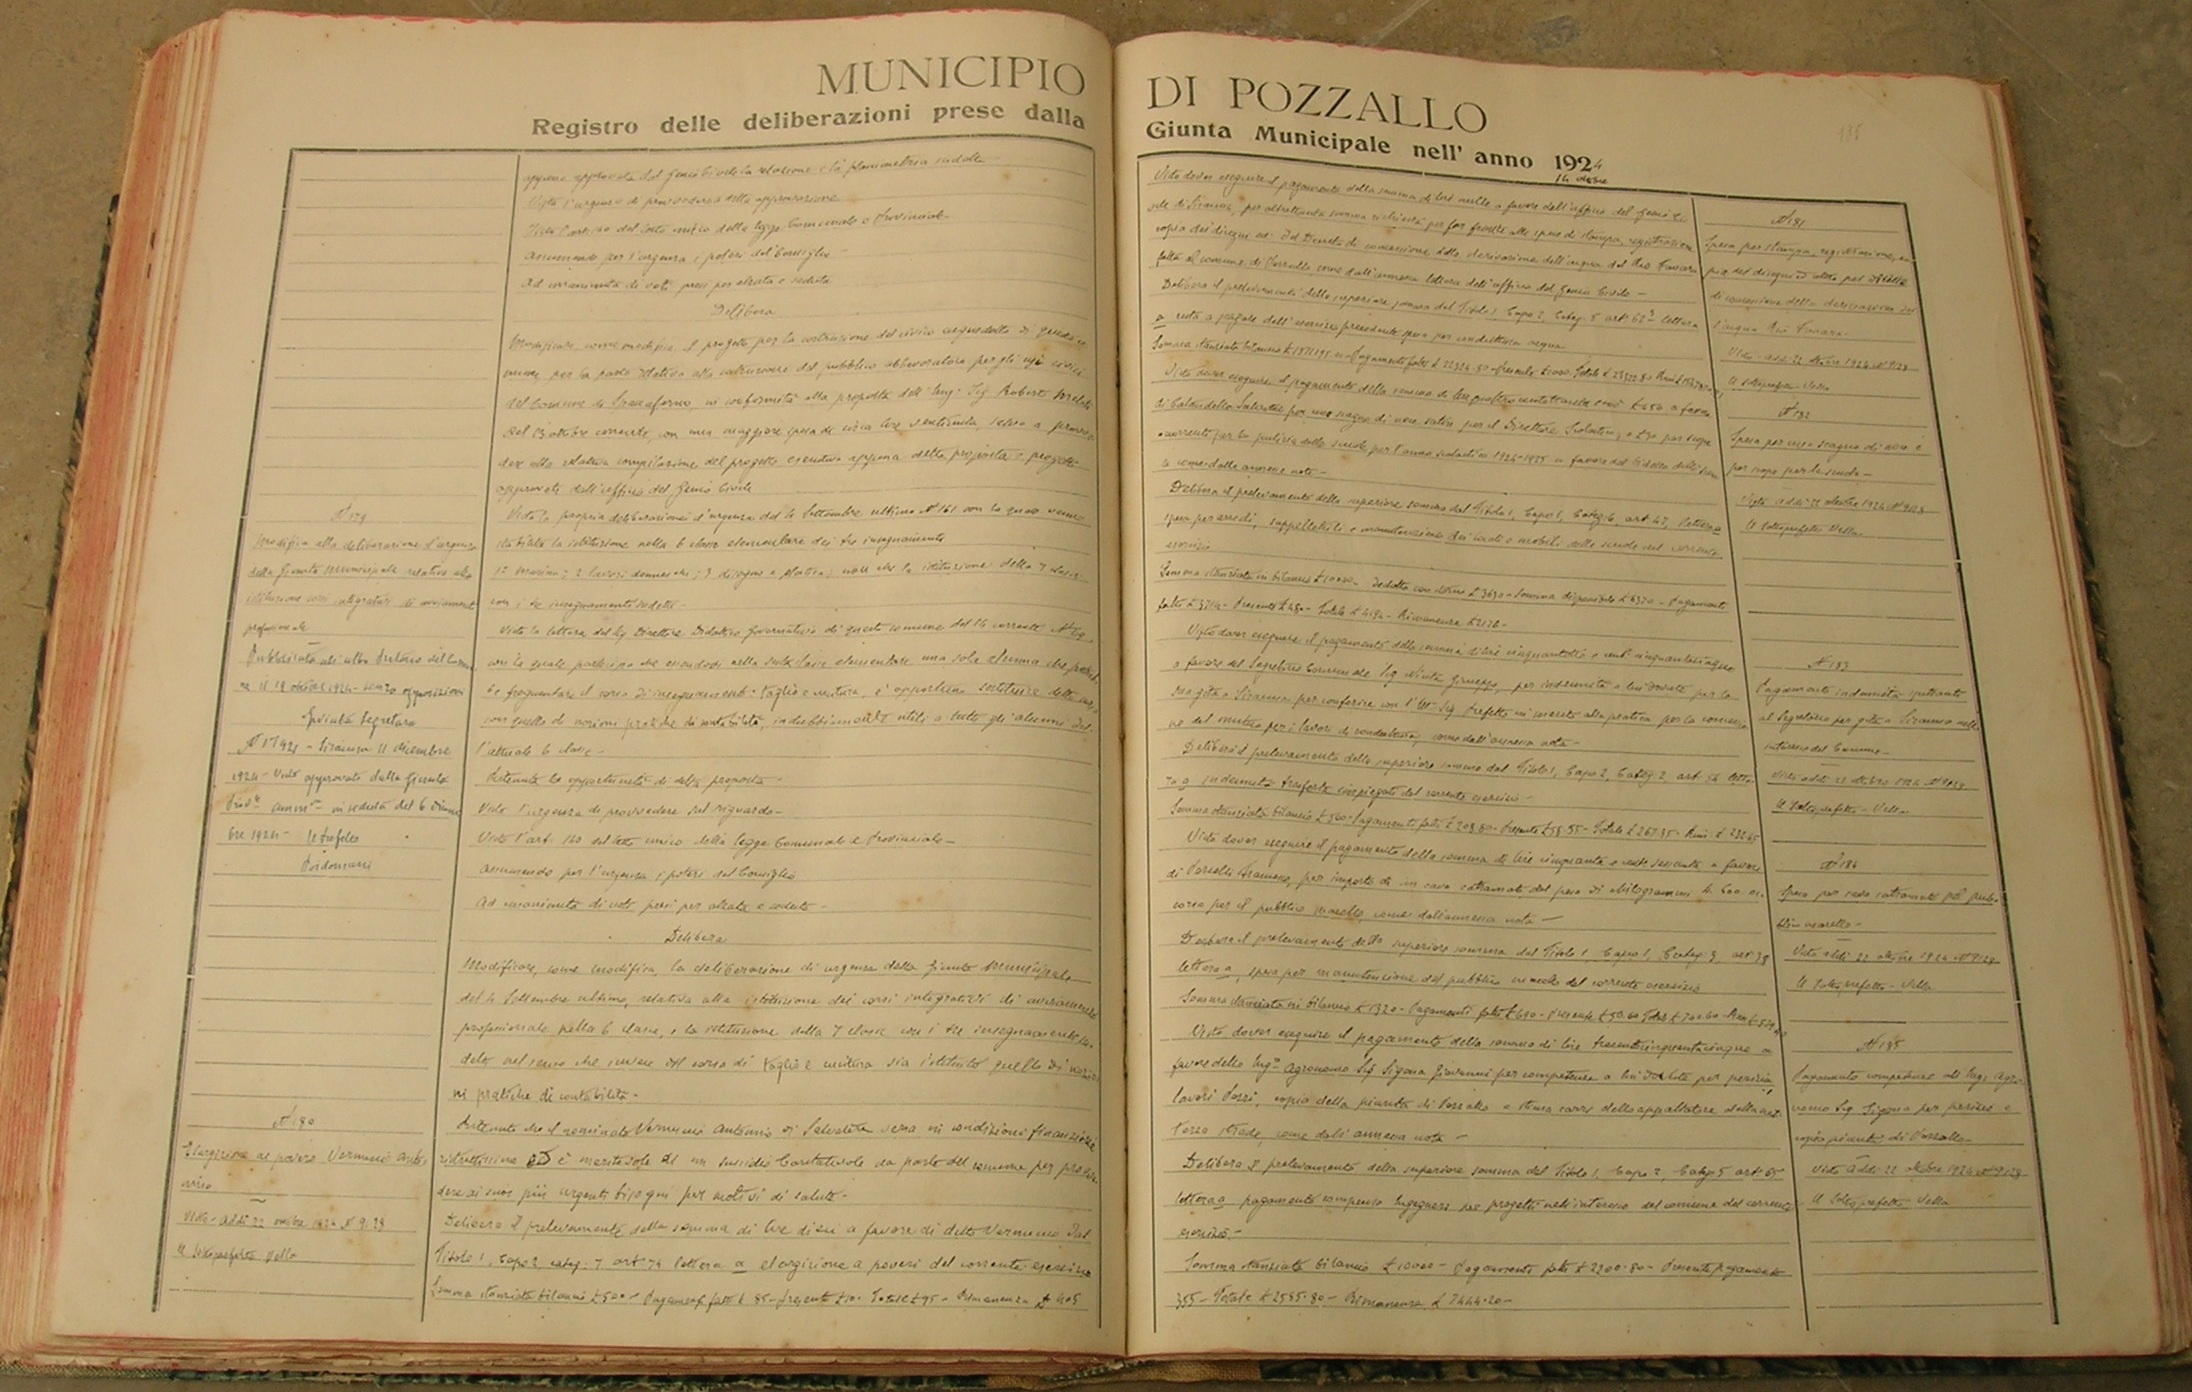 MUNICIPIO
Registro delle deliberazioni prese dalla
appena approvata dal Genio Civile la relazione e la planimetria
Visto l'urgenza di provvedere
Visto l'art. del testo unico della legge Comunale e Provinciale
assumendo per l'urgenza i poteri del Consiglio
ad unanimità di voti presi per alzata e seduta
Delibera
Modificare, come modifica, il progetto per la costruzione del civico acquedotto di questo
mune per la parte relativa alla costruzione del pubblico abbeveratoio per gli usi civici
del Comune di Spaccaforno, in conformità alla proposta dell'Ing. Sig. Roberto
del 13 ottobre corrente, con una maggiore spesa di circa lire ventimila, salvo a
dere alla relativa compilazione del progetto esecutivo appena detta proposta e progetto
approvati dall'ufficio del Genio Civile
N 179
Modifica alla deliberazione d'urgenza
della Giunta Municipale relativa alla
istituzione corsi integrativi di avviamento
professionale
Pubblicata all'albo Pretorio del
ne il 19 ottobre 1924 - senza opposizioni
Segretario
Siracusa 11 dicembre
1924 - Visto approvato dalla Giunta
in seduta del 6
bre 1924 - Il Prefetto
Visto la propria deliberazione d'urgenza del 4 Settembre ultimo N 161 con la quale venne
stabilita la istituzione nella 6 classe elementare dei tre insegnamenti
2 lavori donneschi; 3 disegno e plastica; la istituzione della 7 classe
con i tre insegnamenti
Visto la lettera del Sig Direttore Didattico Governativo di questo comune del 16 corrente
con la quale partecipa che essendovi nella sesta classe elementare una sola alunna che
be frequentare il corso di insegnamento: taglio e cucitura, è opportuno sostituire detto corso
con quello di nozioni pratiche di contabilità, indubbiamente utili a tutti gli alunni del
l'attuale 6 classe -
Ritenuta la opportunità di detta proposta -
Visto l'urgenza di provvedere sul riguardo -
Visto l'art. 140 del testo unico della legge Comunale e Provinciale -
assumendo per l'urgenza i poteri del Consiglio
ad unanimità di voti presi per alzata e seduta -
Delibera
Modificare, come modifica, la deliberazione di urgenza della Giunta Municipale
del 4 Settembre ultimo, relativa alla istituzione dei corsi integrativi di avviamento
professionale nella 6 classe, e la istituzione della 7 classe con i tre insegnamenti
detto nel senso che invece del corso di taglio e cucitura sia istituito quello di nozio
ni pratiche di contabilità -
N 180
Elargizione al povero Vermuccio Anto
nino
Visto - Addi 22 ottobre 1924 N 9128
Il Sottoprefetto Vella
Ritenuto che il nominato Vermuccio Antonino di Salvatore versa in condizioni finanziarie
ristrettissime ed è meritevole di un sussidio caritatevole da parte del comune per provve
dere ai suoi più urgenti bisogni per motivi di salute -
Delibera il prelevamento della somma di lire dieci a favore di detto Vermuccio dal
Titolo 1, Capo 2, categ. 7 art 74 lettera a elargizione a poveri del corrente esercizio
Somma stanziata bilancio £ 500 - Pagamenti fatti £ 85 - Presente £ 10 - Totale £ 95 - Rimanenza £ 405
DI POZZALLO
Giunta Municipale nell' anno 1924
14 ottobre
185
Visto dover eseguire il pagamento della somma di lire mille a favore dell'ufficio del Genio Ci
vile di Siracusa, per altrettanta somma richiesta per far fronte alle spese di stampa, registrazione
copia dei disegni ed al Decreto di concessione della derivazione dell'acqua del Rio Favara
fatta al comune di Pozzallo come dall'annessa lettera dell'ufficio del Genio Civile -
Delibera il prelevamento della superiore somma dal Titolo 1, Capo 2, Categ. 5 art 62 lettera
a resti a pagare dell'esercizio precedente spesa per conduttura acqua
N 181
Spesa per stampa, registrazione, co
pia dei disegni ed altro pel decreto
di concessione della derivazione del
l'acqua Rio Favara -
Visto - addi 22 ottobre 1924 N 9128
Il Sottoprefetto - Vella
Visto dover eseguire il pagamento della somma di lire quattrocentottanta cioè £ 450 a favore
di Salvatore per uno scagno di noce satin per il Direttore Didattico, e £ 30 per scope
occorrenti per la pulizia delle scuole per l'anno scolastico 1924-1925 a favore del bidello
la come dalle annesse note -
Delibera il prelevamento della superiore somma dal Titolo 1, Capo 1, Categ 6, art 47, lettera a
spesa per arredi, suppellettili e manutenzione dei locali e mobili delle scuole nel corrente
esercizio
Somma stanziata in bilancio £ 10000 - Somma disponibile £ 6370 - Pagamenti
fatti £ 3714 - Presente £ 480 - Totale £ 4194 - Rimanenza £ 2176 -
N 182
Spesa per uno scagno di noce e
per scope per le scuole -
Visto addi 22 ottobre 1924 N 9128
Il Sottoprefetto Vella
Visto dover eseguire il pagamento della somma di lire cinquantotto e cent. cinquantacinque
a favore del Segretario Comunale Sig. Giuseppe, per indennità a lui dovute per la
sua gita a Siracusa per conferire con l'Ill. Sig. Prefetto in merito alla pratica per la concessio
ne del mutuo per i lavori di conduttura, come dall'annessa nota -
Delibera il prelevamento della superiore somma dal Titolo 1, Capo 2, Categ. 2 art 54 lette
ra a indennità trasferte impiegati del corrente esercizio -
Somma stanziata bilancio £ 500 - Pagamenti fatti £ 208.80 - Presente £ 58.55 - Totale £ 267.35 - Rim. £ 232.65
N 183
Pagamento indennità spettante
al Segretario per gita a Siracusa nell'
interesse del Comune -
Visto addi 22 ottobre 1924 N 9128
Il Sottoprefetto - Vella
Visto dover eseguire il pagamento della somma di lire cinquanta e cent. sessanta a favore
di Francesco, per importo di un cavo catramato del peso di chilogrammi 4.600 oc
corso per il pubblico macello, come dall'annessa nota -
Delibera il prelevamento della superiore somma dal Titolo 1 Capo 1, Categ. 3 art 38
lettera a, spesa per manutenzione del pubblico macello del corrente esercizio
Somma stanziata in bilancio £ 1320 - Pagamenti fatti £ 690 - Presente £ 50.60
N 184
Spesa per cavo catramato pel pub
blico macello -
Visto addi 22 ottobre 1924 N 9128
Il Sottoprefetto - Vella
Visto dover eseguire il pagamento della somma di lire trecentocinquantacinque a
favore dello Ing. Agronomo Sig. Sigona Giovanni per competenze a lui dovute per perizia
lavori Pozzi, copia della pianta di Pozzallo e dell'appaltatore della
strade, come dall'annessa nota -
Delibera il prelevamento della superiore somma dal Titolo 1, Capo 2, Categ 5 art 65
lettera a pagamento compenso Ingegneri per progetti nell'interesse del comune del corrente
esercizio. -
Somma stanziata bilancio £ 10000 - Pagamenti fatti £ 2200.80 - Presente pagamento
355 - Totale £ 2555.80 - Rimanenza £ 7444.20 -
N 185
Pagamento competenze all'Ing. Agro
nomo Sig. Sigona per perizie e
copia pianta di Pozzallo -
Visto addi 22 ottobre 1924 N 9128
Il Sottoprefetto Vella